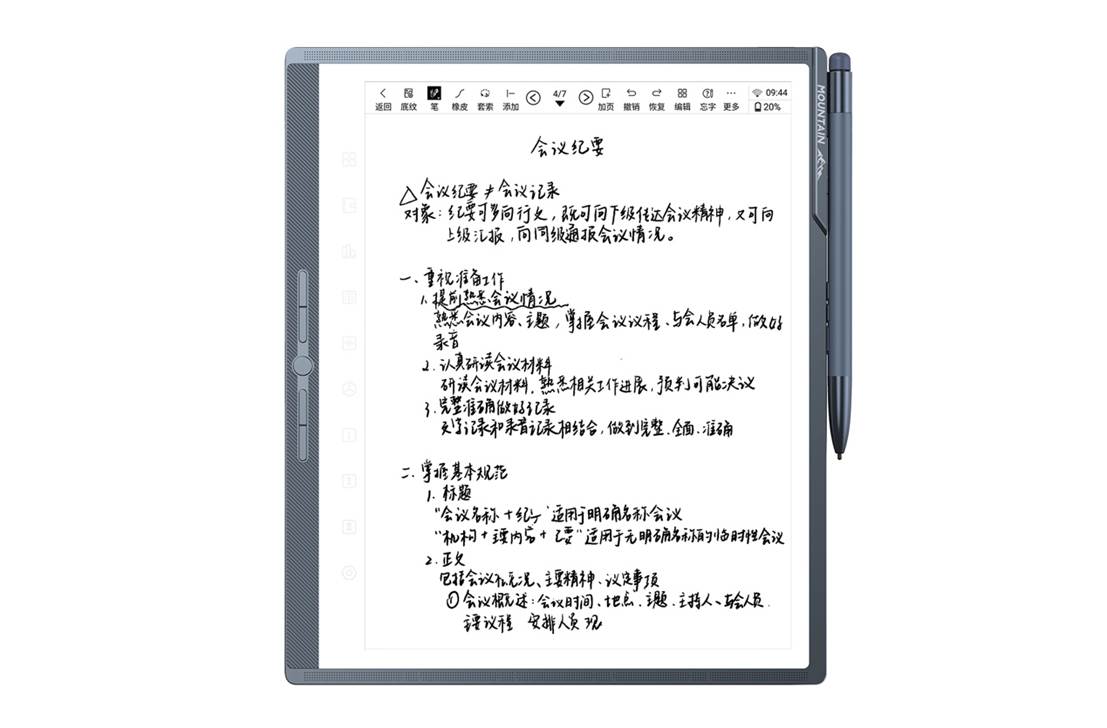 返回 底纹 笔 橡皮 套索 添加 4/7 加页 撤销 恢复 编辑 忘字 更多 09:44 20%
MOUNTAIN
会议纪要
△会议纪要≠会议记录
对象：纪要可多向行文，既可向下级传达会议精神，又可向
上级汇报，向同级通报会议情况。
一、重视准备工作
1.提前熟悉会议情况
熟悉会议内容、主题，掌握会议议程、与会人员名单，做好
录音
2.认真研读会议材料
研读会议材料，熟悉相关工作进展，预判可能决议
3.完整准确做好记录
文字记录和录音记录相结合，做到完整、全面、准确
二、掌握基本规范
1.标题
“会议名称+纪 ”适用于明确名称会议
“机构+主要内容+ 要”适用于无明确名称的临时性会议
2.正文
包括会议概况、主要精神、议定事项
①会议概述：会议时间、地点、主题、主持人、与会人员、
主要议程 安排人员